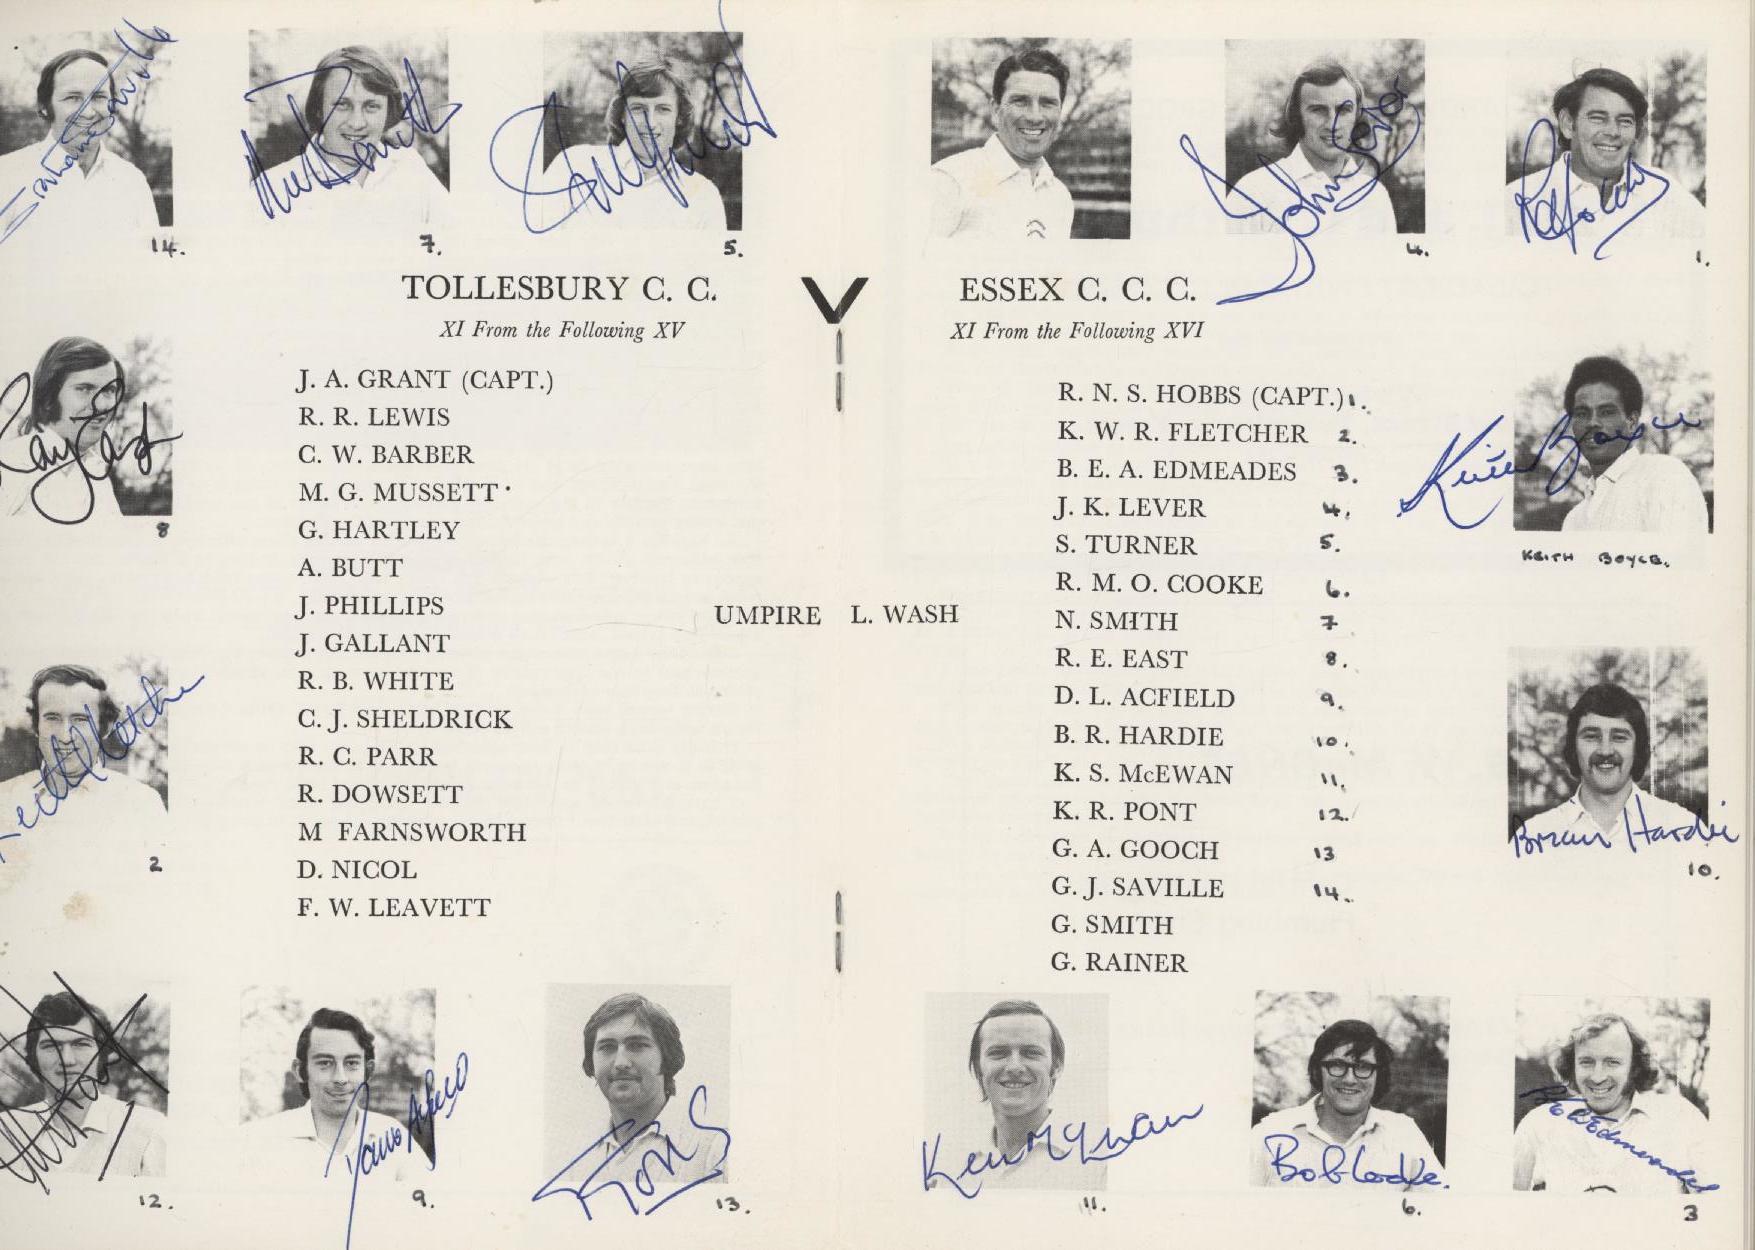 14.
7.
5.
John Lever
4.
1.
TOLLESBURY C. C.
XI From the Following XV
V
ESSEX C. C. C.
XI From the Following XVI
J. A. GRANT (CAPT.)
R. R. LEWIS
C. W. BARBER
M. G. MUSSETT
G. HARTLEY
A. BUTT
J. PHILLIPS
J. GALLANT
R. B. WHITE
C. J. SHELDRICK
R. C. PARR
R. DOWSETT
M FARNSWORTH
D. NICOL
F. W. LEAVETT
UMPIRE L. WASH
R. N. S. HOBBS (CAPT.) 1.
K. W. R. FLETCHER 2.
B. E. A. EDMEADES 3.
J. K. LEVER 4.
S. TURNER 5.
R. M. O. COOKE 6.
N. SMITH 7
R. E. EAST 8.
D. L. ACFIELD 9.
B. R. HARDIE 10.
K. S. McEWAN 11.
K. R. PONT 12.
G. A. GOOCH 13
G. J. SAVILLE 14.
G. SMITH
G. RAINER
Ray East
8
Keith Fletcher
2
Keith Boyce
KEITH BOYCE.
Brian Hardie
10.
12.
David Acfield
9.
13.
Ken McEwan
11.
Bob Cooke.
6.
3